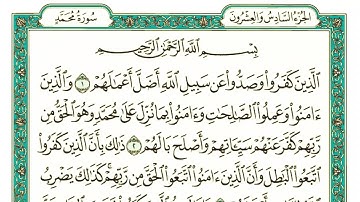 سُورَةُ مُحَمَّدٍ الجُزْءُ السَّادِسُ وَالعِشْرُونَ
بِسْمِ اللَّهِ الرَّحْمَٰنِ الرَّحِيمِ
الَّذِينَ كَفَرُوا وَصَدُّوا عَن سَبِيلِ اللَّهِ أَضَلَّ أَعْمَالَهُمْ ١ وَالَّذِينَ
ءَامَنُوا وَعَمِلُوا الصَّالِحَاتِ وَءَامَنُوا بِمَا نُزِّلَ عَلَىٰ مُحَمَّدٍ وَهُوَ الْحَقُّ مِن
رَّبِّهِمْ كَفَّرَ عَنْهُمْ سَيِّئَاتِهِمْ وَأَصْلَحَ بَالَهُمْ ٢ ذَٰلِكَ بِأَنَّ الَّذِينَ كَفَرُوا
اتَّبَعُوا الْبَاطِلَ وَأَنَّ الَّذِينَ ءَامَنُوا اتَّبَعُوا الْحَقَّ مِن رَّبِّهِمْ كَذَٰلِكَ يَضْرِبُ